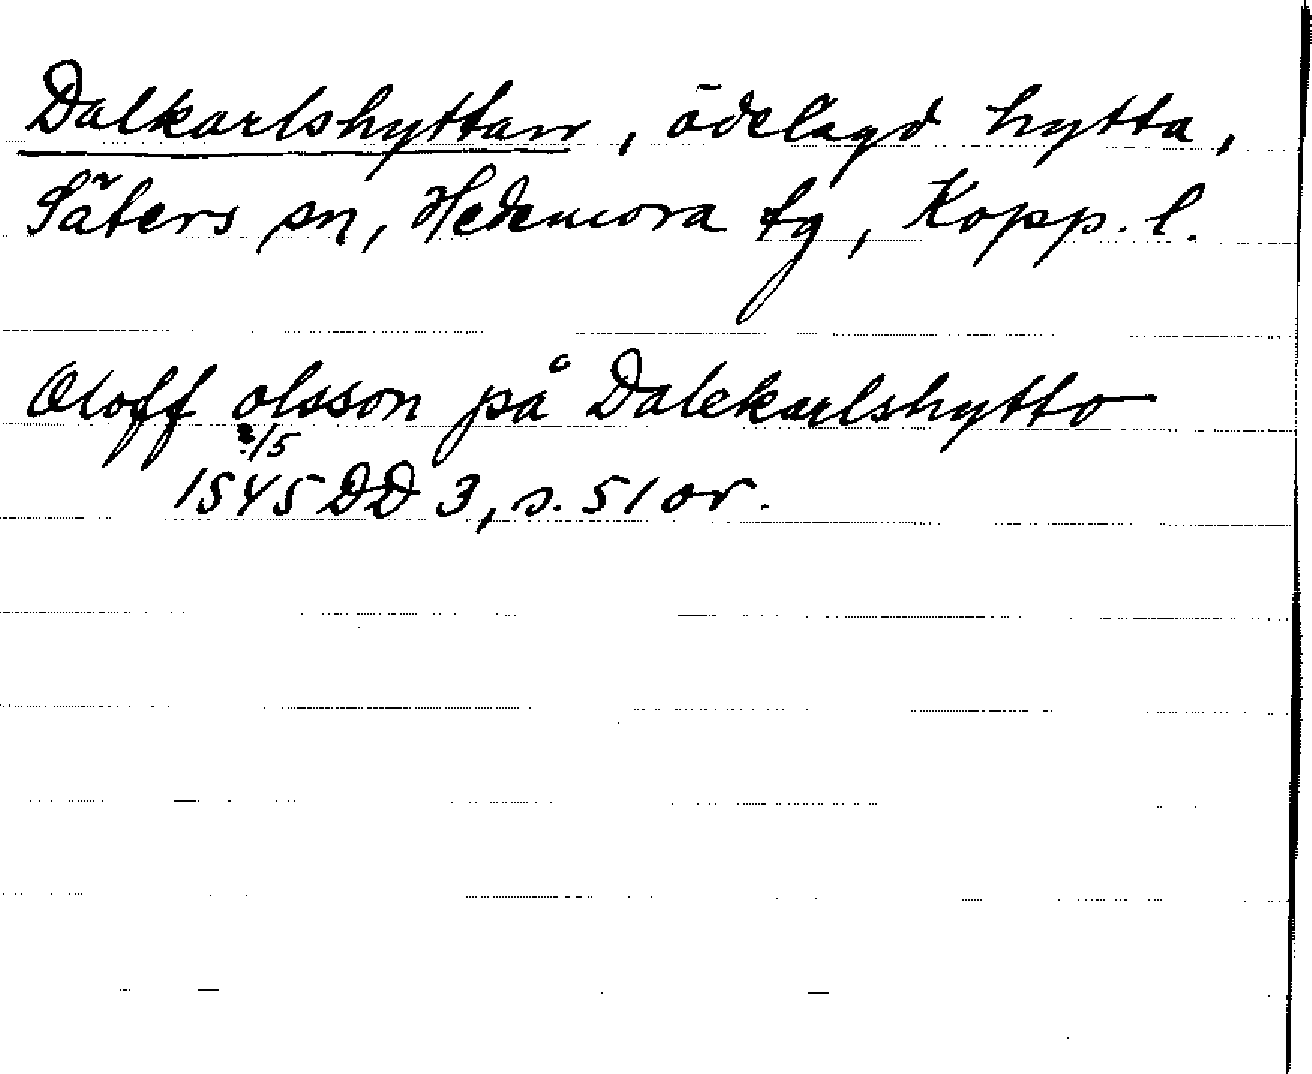 Dalkarlshyttan, ödelagd hytta,
Säters sn, Hedemora tg, Kopp. l.
Oloff olsson på Dalekarlshytto
/5
1545 DD 3, s. 51 or.